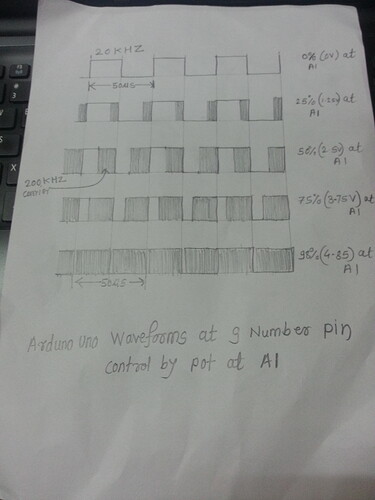 20KHZ
0% (0V) at
A1
50US
25% (1.25) at
A1
50% (2.5V) at
A1
200KHZ
75% (3.75V) at
A1
98% (4.85) at
A1
50US
Arduno Uno Waveforms at 9 Number pin
control by pot at A1